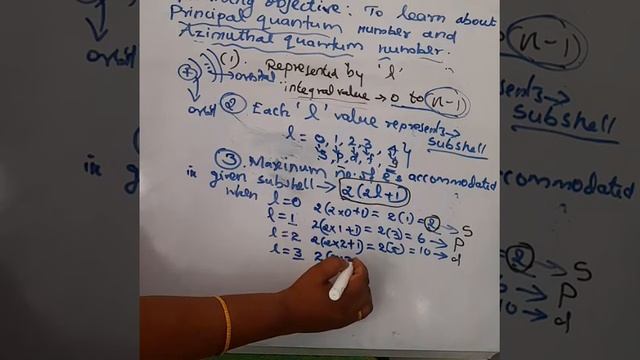 objective: To learn about
Principal quantum number and
Azimuthal quantum number.
(1). Represented by 'l'
orbital integral value → 0 to (n-1)
orbit
② Each 'l' value represents → subshell
l = 0, 1, 2, 3, 4
s, p, d, f, g
③ Maximum no. of e's accommodated
in given subshell → 2(2l+1)
when l=0 2(2x0+1) = 2(1) = 2 → S
l=1 2(2x1+1) = 2(3) = 6 → P
l=2 2(2x2+1) = 2(5) = 10 → d
l=3